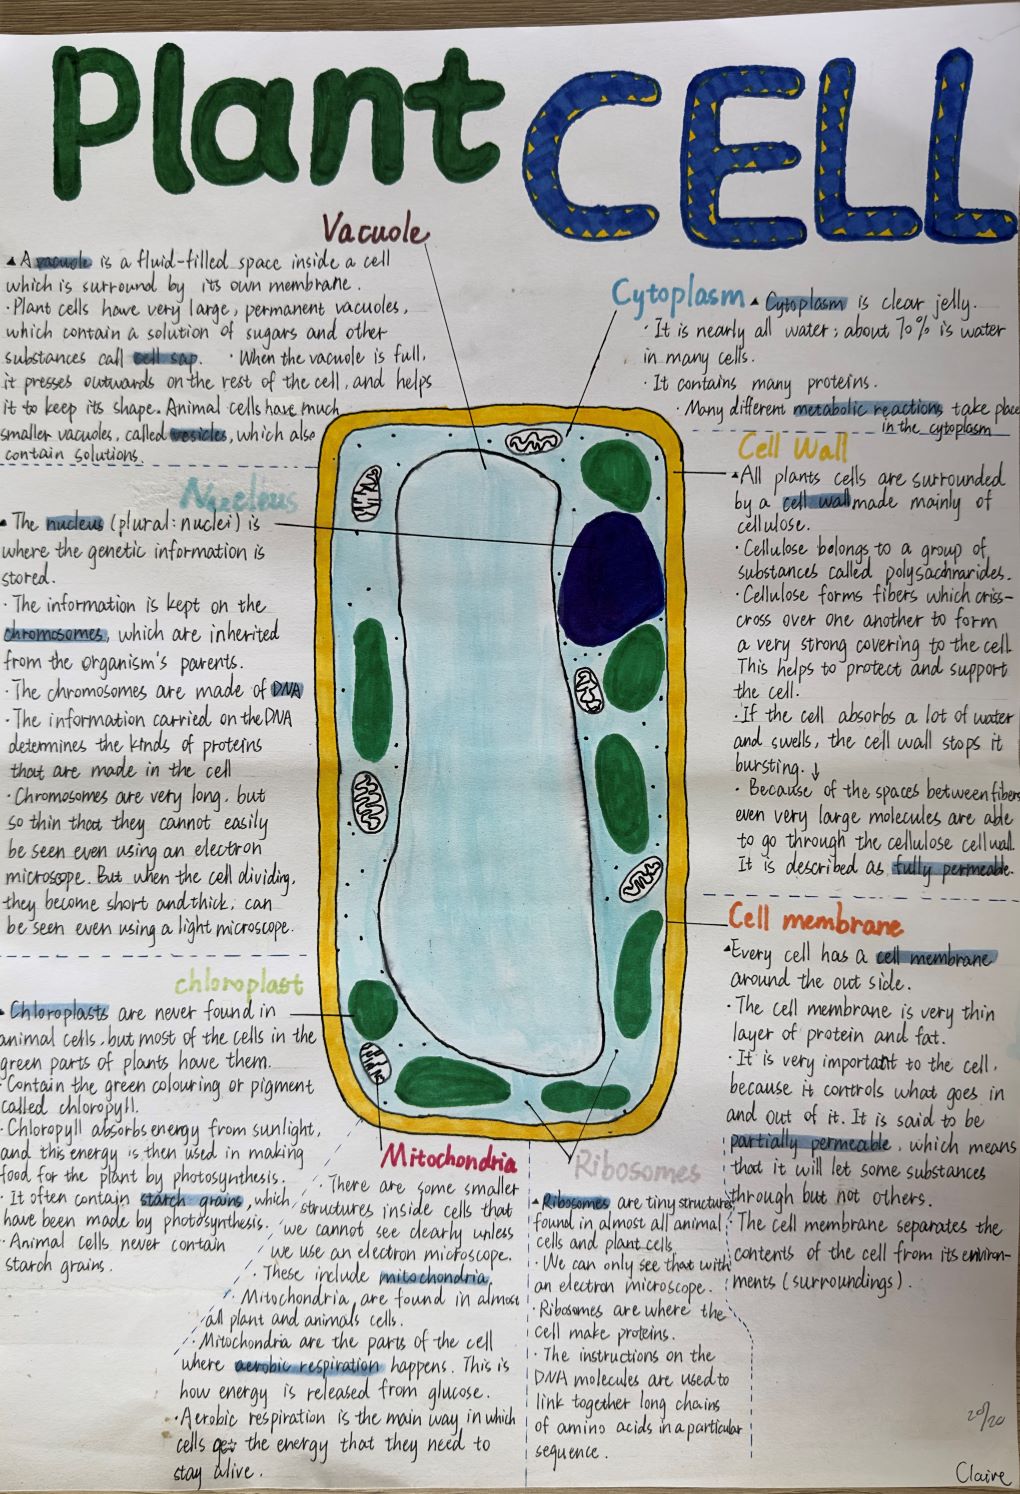 Plant CELL
Vacuole
▲ A vacuole is a fluid-filled space inside a cell
which is surround by its own membrane.
· Plant cells have very large, permanent vacuoles,
which contain a solution of sugars and other
substances call cell sap. · When the vacuole is full,
it presses outwards on the rest of the cell, and helps
it to keep its shape. Animal cells have much
smaller vacuoles, called vesicles, which also
contain solutions.
Cytoplasm ▲ Cytoplasm is clear jelly.
· It is nearly all water; about 70% is water
in many cells.
· It contains many proteins.
· Many different metabolic reactions take place
in the cytoplasm
Nucleus
▲ The nucleus (plural: nuclei) is
where the genetic information is
stored.
· The information is kept on the
chromosomes, which are inherited
from the organism's parents.
· The chromosomes are made of DNA
· The information carried on the DNA
determines the kinds of proteins
that are made in the cell
· Chromosomes are very long, but
so thin that they cannot easily
be seen even using an electron
microscope. But when the cell dividing,
they become short and thick, can
be seen even using a light microscope.
Cell Wall
▲ All plants cells are surrounded
by a cell wall made mainly of
cellulose.
· Cellulose belongs to a group of
substances called polysacharides.
· Cellulose forms fibers which criss-
cross over one another to form
a very strong covering to the cell.
This helps to protect and support
the cell.
· If the cell absorbs a lot of water
and swells, the cell wall stops it
bursting. ↓
· Because of the spaces between fibers
even very large molecules are able
to go through the cellulose cell wall.
It is described as fully permeable.
chloroplast
▲ Chloroplasts are never found in
animal cells, but most of the cells in the
green parts of plants have them.
· Contain the green colouring or pigment
called chloropyll.
· Chloropyll absorbs energy from sunlight,
and this energy is then used in making
food for the plant by photosynthesis.
· It often contain starch grains, which
have been made by photosynthesis.
· Animal cells never contain
starch grains.
Cell membrane
▲ Every cell has a cell membrane
around the out side.
· The cell membrane is very thin
layer of protein and fat.
· It is very important to the cell,
because it controls what goes in
and out of it. It is said to be
partially permeable, which means
that it will let some substances
through but not others.
· The cell membrane separates the
contents of the cell from its environ-
ments (surroundings).
Mitochondria
· There are some smaller
structures inside cells that
we cannot see clearly unless
we use an electron microscope.
· These include mitochondria.
· Mitochondria, are found in almost
all plant and animals cells.
· Mitochondria are the parts of the cell
where aerobic respiration happens. This is
how energy is released from glucose.
· Aerobic respiration is the main way in which
cells get the energy that they need to
stay alive.
Ribosomes
▲ Ribosomes are tiny structures
found in almost all animal
cells and plant cells
· We can only see that with
an electron microscope.
· Ribosomes are where the
cell make proteins.
· The instructions on the
DNA molecules are used to
link together long chains
of amino acids in a particular
sequence.
20/20
Claire